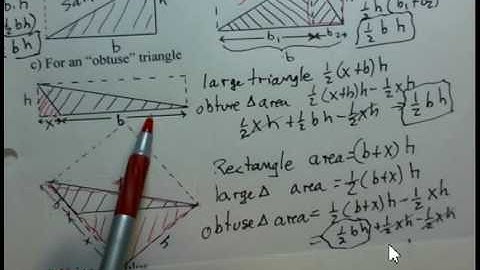 ½ b h
½ b h
b
b₁
b₂
½ h (b₁ + b₂)
½ b h
b
c) For an "obtuse" triangle
h
x
b
large triangle ½ (x+b) h
obtuse Δ area ½ (x+b) h - ½ x h
½ x h + ½ b h - ½ x h → ½ b h
Rectangle area = (b+x) h
large Δ area = ½ (b+x) h
obtuse Δ area = ½ (b+x) h - ½ x h
= ½ b h + ½ x h - ½ x h
b
x
h